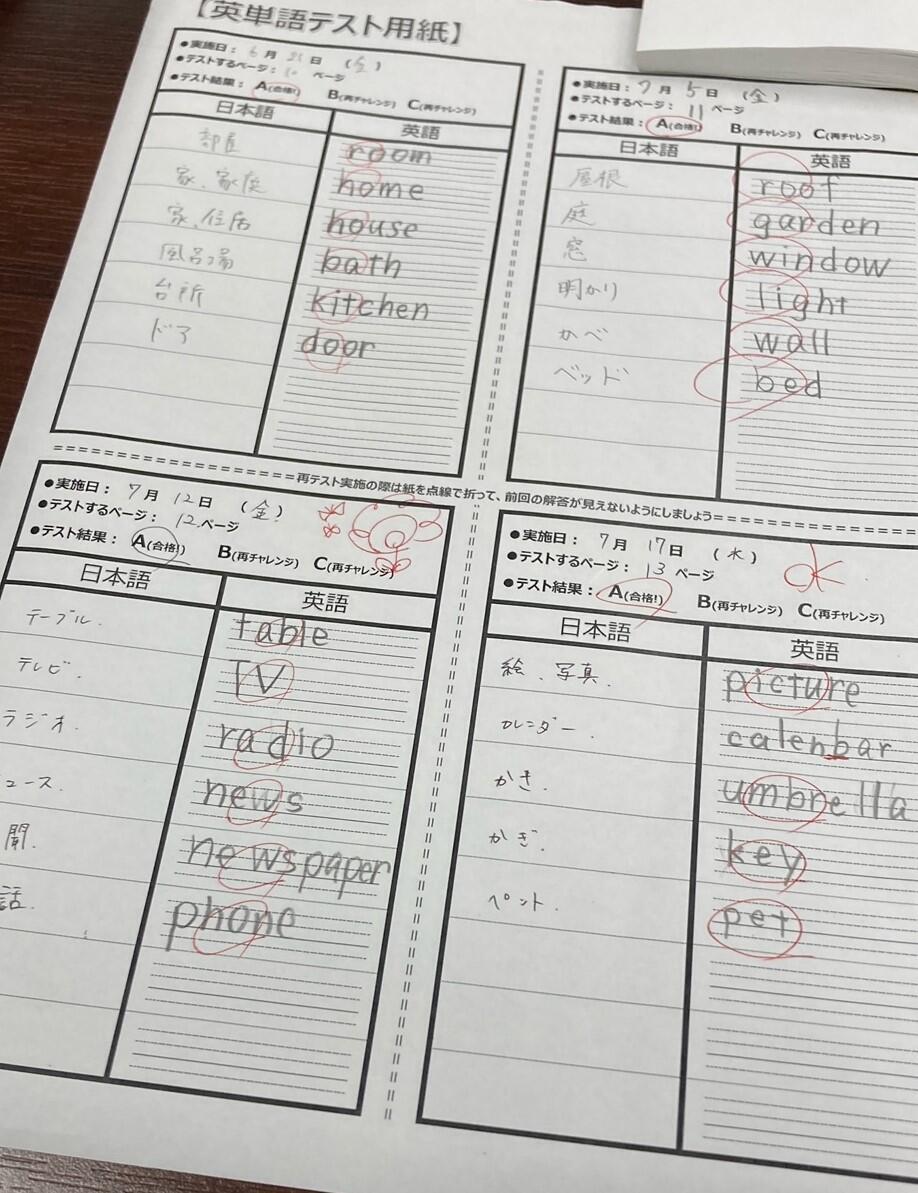 【英単語テスト用紙】
●実施日： 6 月 21 日 （金）
●テストするページ： 10 ページ
●テスト結果： A(合格!) B(再チャレンジ) C(再チャレンジ)
日本語 英語
部屋 room
家、家庭 home
家、住居 house
風呂場 bath
台所 kitchen
ドア door
●実施日： 7 月 5 日 （金）
●テストするページ： 11 ページ
●テスト結果： A(合格!) B(再チャレンジ) C(再チャレンジ)
日本語 英語
屋根 roof
庭 garden
窓 window
明かり light
かべ wall
ベッド bed
再テスト実施の際は紙を点線で折って、前回の解答が見えないようにしましょう
●実施日： 7 月 12 日 （金）
●テストするページ： 12 ページ
●テスト結果： A(合格!) B(再チャレンジ) C(再チャレンジ)
日本語 英語
テーブル. table
テレビ. TV
ラジオ. radio
ュース. news
聞. newspaper
話. phone
●実施日： 7 月 17 日 （水） ok
●テストするページ： 13 ページ
●テスト結果： A(合格!) B(再チャレンジ) C(再チャレンジ)
日本語 英語
絵、写真. picture
カレンダー. calenbar
かさ. umbrella
かぎ. key
ペット. pet